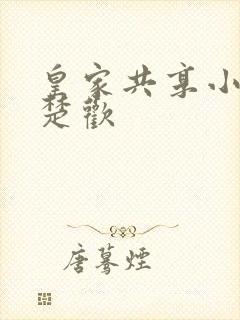 皇家共享小
楚歡
唐驀煙